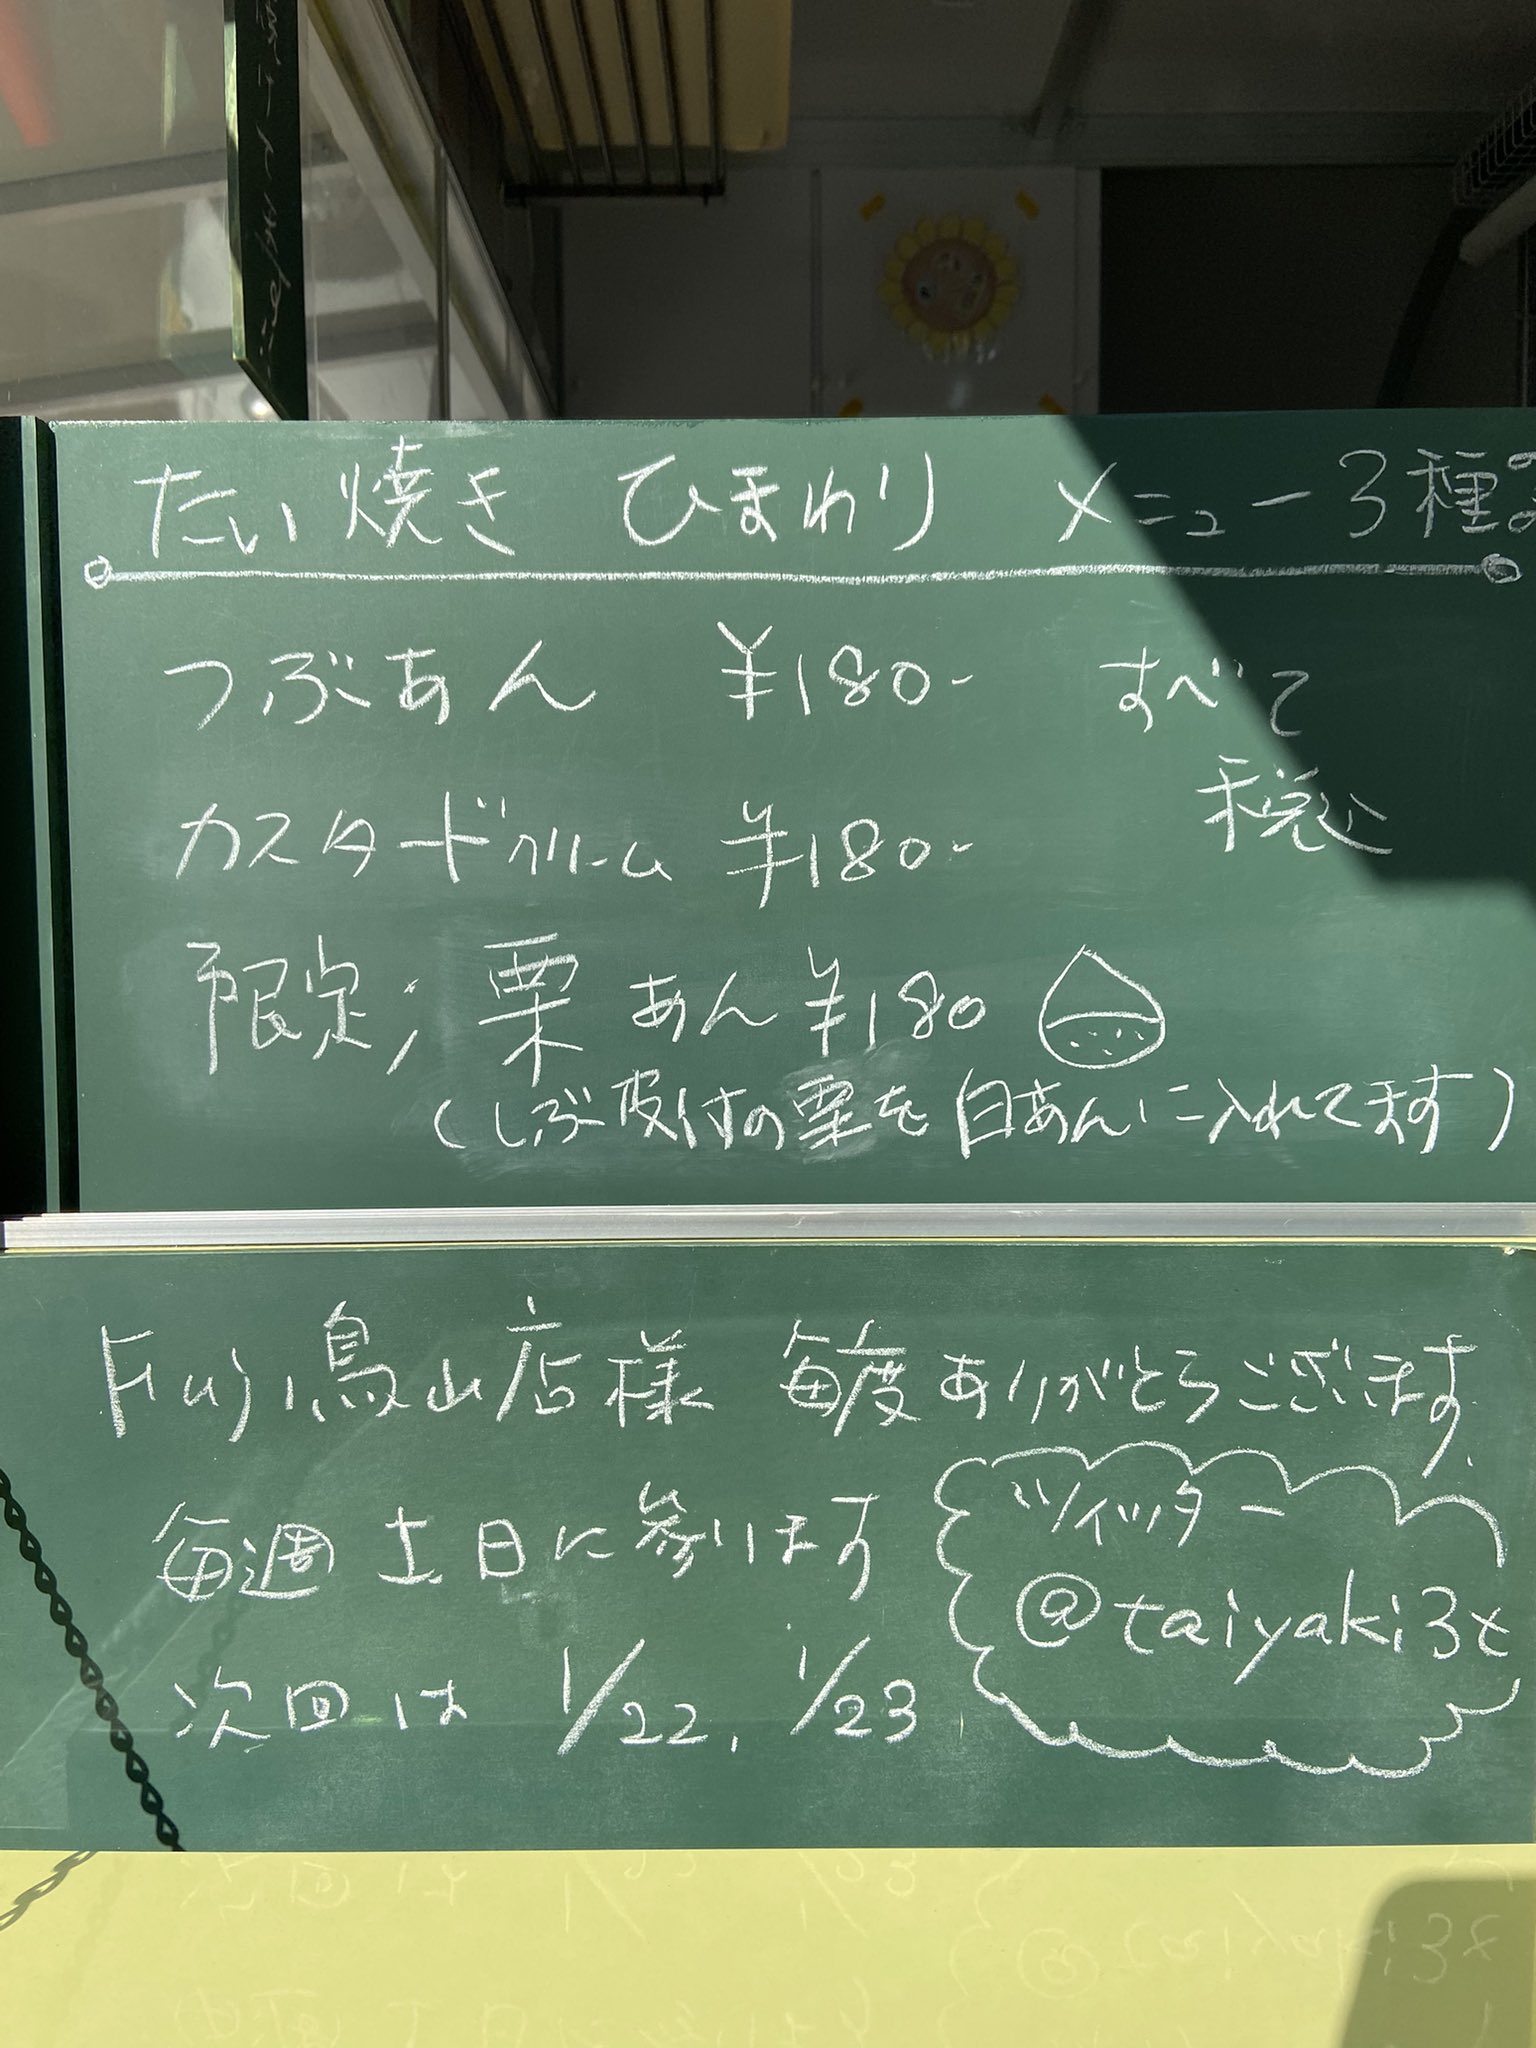 たい焼き ひまわり メニュー3種
つぶあん ¥180- すべて
カスタードクリーム ¥180- 税込
限定; 栗あん ¥180
(しぶ皮付の栗を白あんに入れてます)
Fuji烏山店様 毎度ありがとうございます
毎週 土日に参ります
ツイッター
@taiyaki3t
次回は 1/22, 1/23